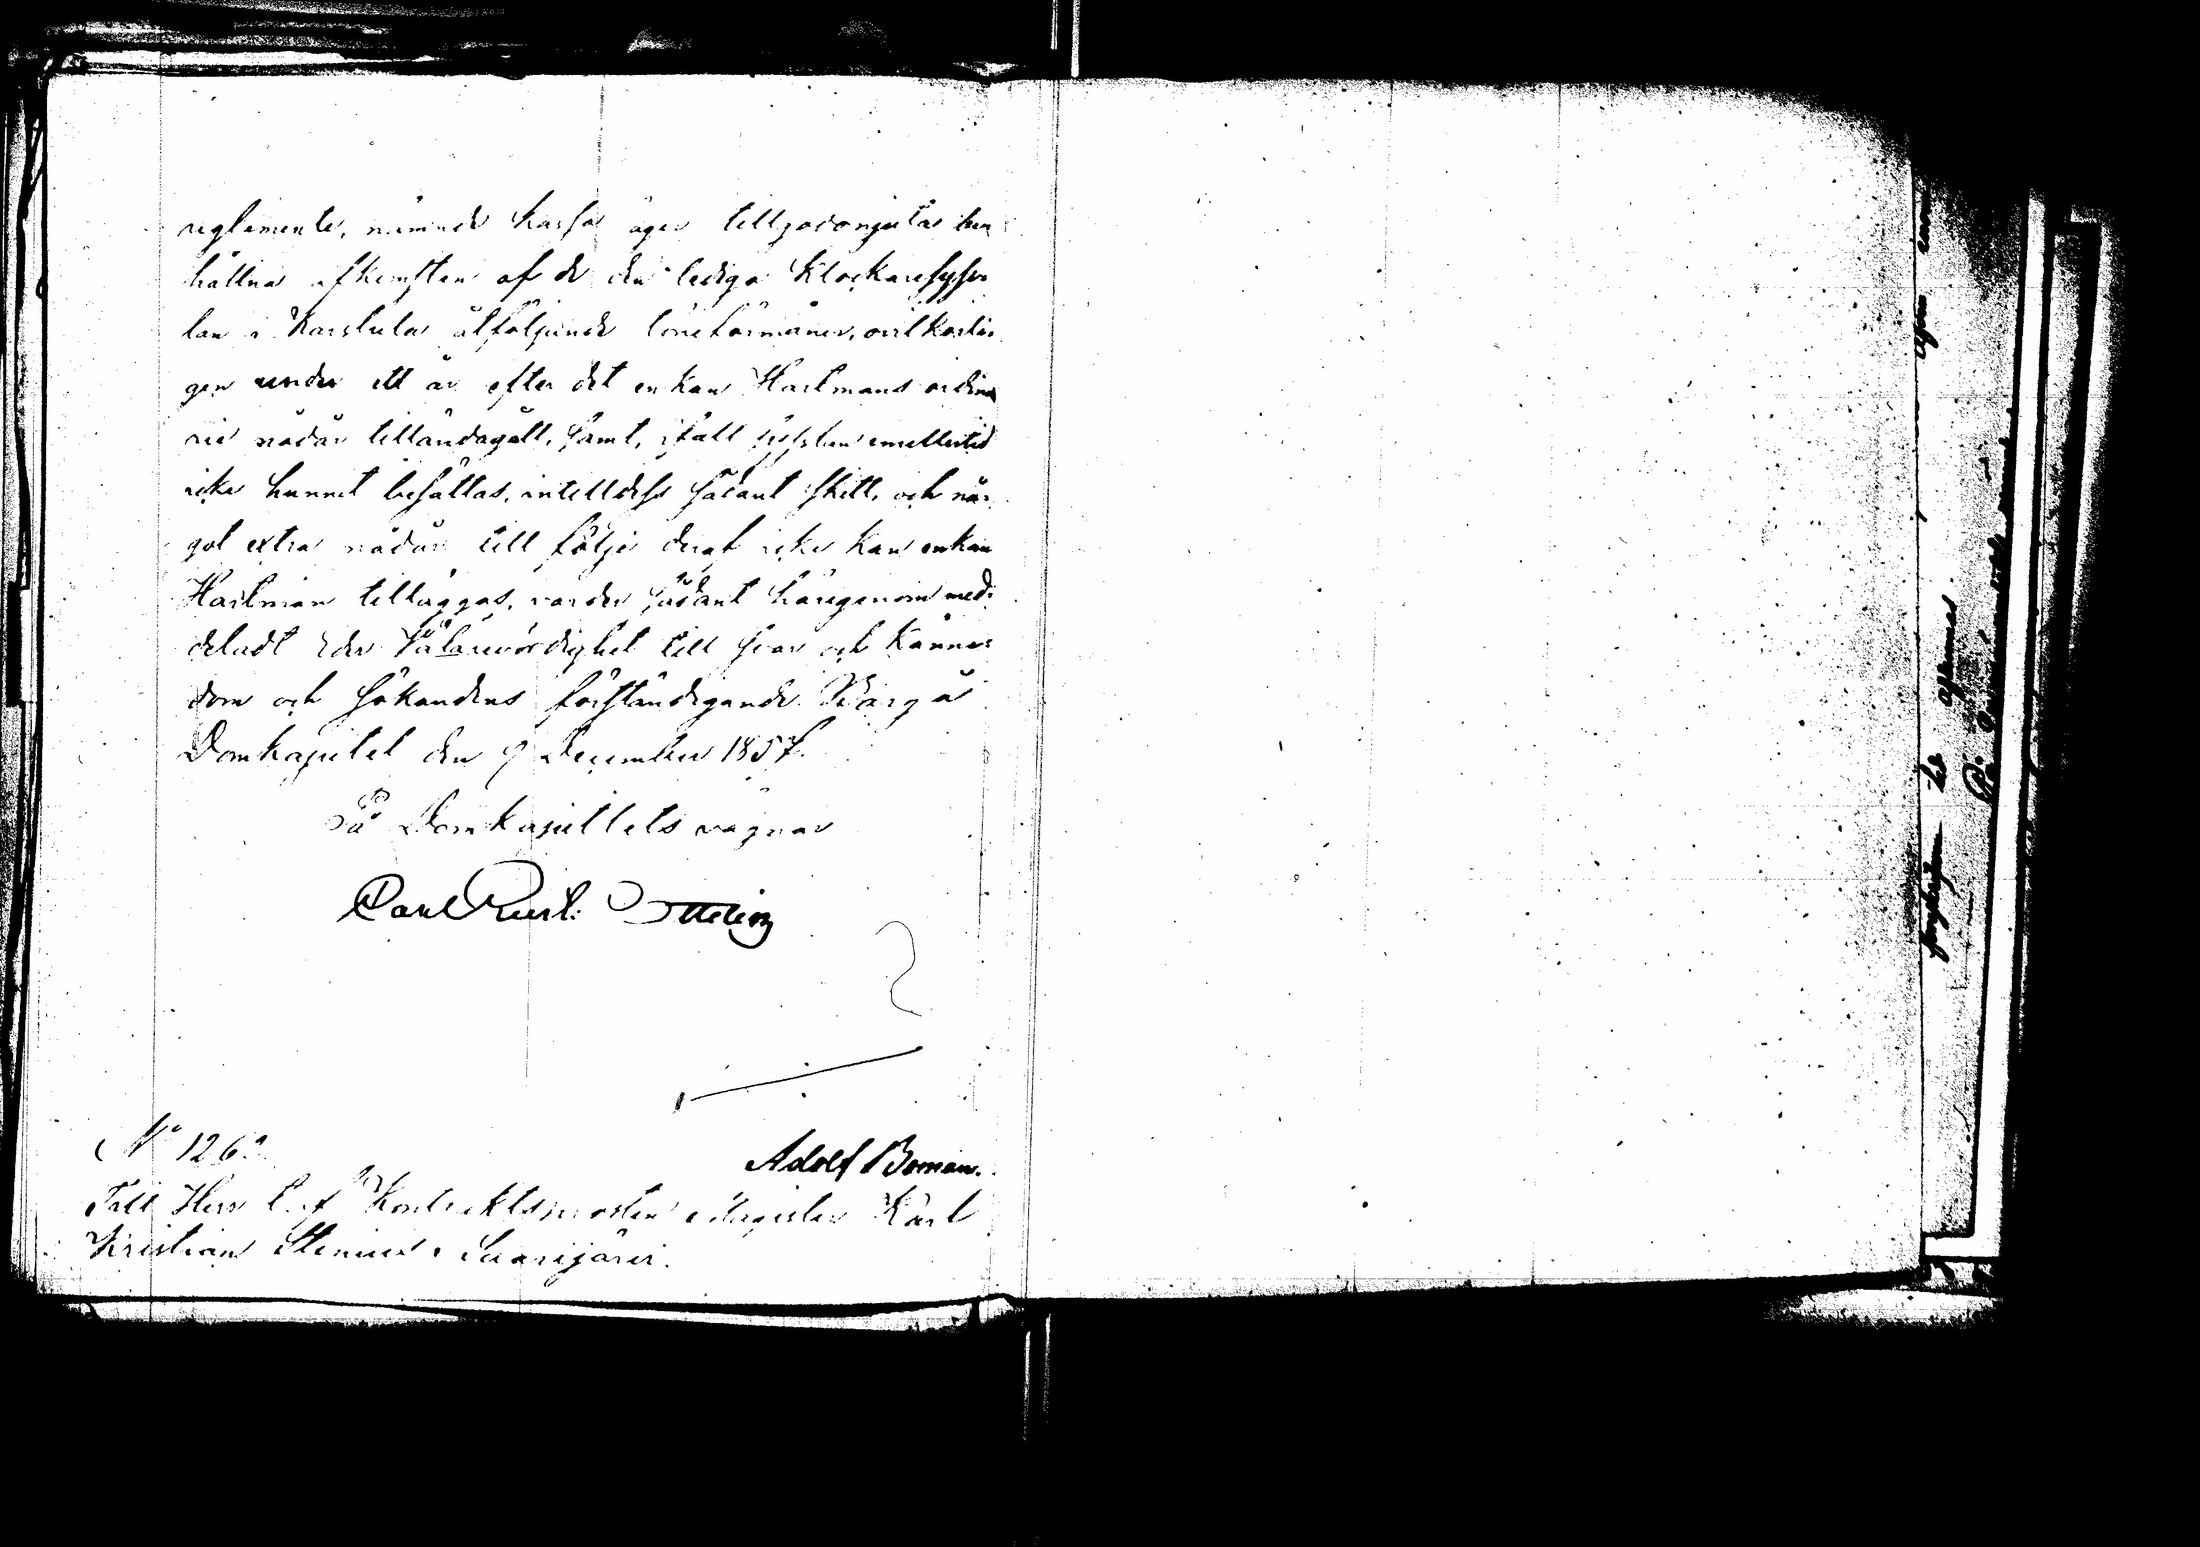 reglemente, nämnde kassa äger tillgodonjuta be-
hållna afkomsten af de den lediga klockaresyss-
lan i Karstula åtföljande löneförmåner, ovilkorli-
gen under ett år efter det enkan Hartmans ordina-
rie nådår tilländagått, samt, ifall sysslan emellertid
icke hunnit besättas, intilldess sådant skett, och nå-
got extra nådår till följe deraf icke kan enkan
Hartman tilläggas, varder sådant härigenom med-
deladt Eder Välärevördighet till svar och känne-
dom och sökandens förständigande. Borgå
Domkapitel den 9 December 1857.
På Domkapitlets vägnar
Carl Gust. Ottelin
Adolf Boman.
N° 126
Till Herr Kontraktsprosten Magister Karl
Kristian Stenius i Saarijärvi.